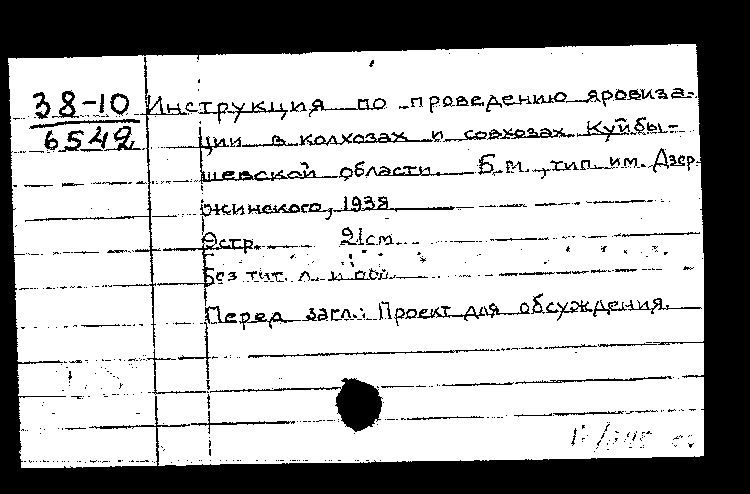 38-10
6542
Инструкция по проведению яровиза-
ции в колхозах и совхозах Куйбы-
шевской области. Б.м., тип. им. Дзер-
жинского, 1938.
стр. 21см.
Без тит. л. и обл.
Перед загл.: Проект для обсуждения.